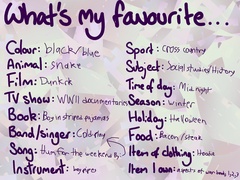 What's my favourite...
Colour: black/blue
Animal: snake
Film: Dunkirk
TV show: WWII documentaries
Book: Boy in striped pyjamas
Band/singer: Coldplay
Song: Hymn for the weekend By
Instrument: bagpipes
Sport: Cross country
Subject: Social studies/History
Time of day: Mid night
Season: winter
Holiday: Halloween
Food: Bacon/steak
Item of clothing: Hoodie
Item I own: a spects of war book, 1, 2, 3